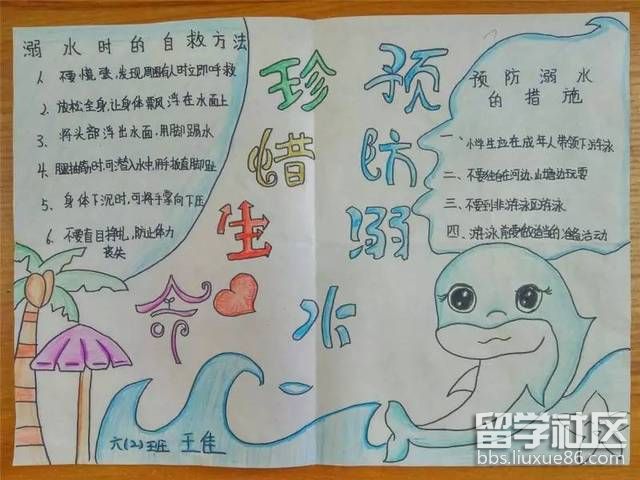 溺水时的自救方法
1. 不要慌张,发现周围有人时立即呼救
2. 放松全身,让身体飘浮在水面上
3. 将头部浮出水面,用脚踢水
4. 腿抽筋时,可潜入水中,用手扳直脚趾
5. 身体下沉时,可将手掌向下压
6. 不要盲目挣扎,防止体力
丧失
珍惜生命
预防溺水
预防溺水
的措施
一、小学生应在成年人带领下游泳
二、不要独自在河边、山塘边玩耍
三、不要到非游泳区游泳
四、游泳前要做适当的准备活动
六(2)班 王佳
留学社区
bbs.liuxue86.com